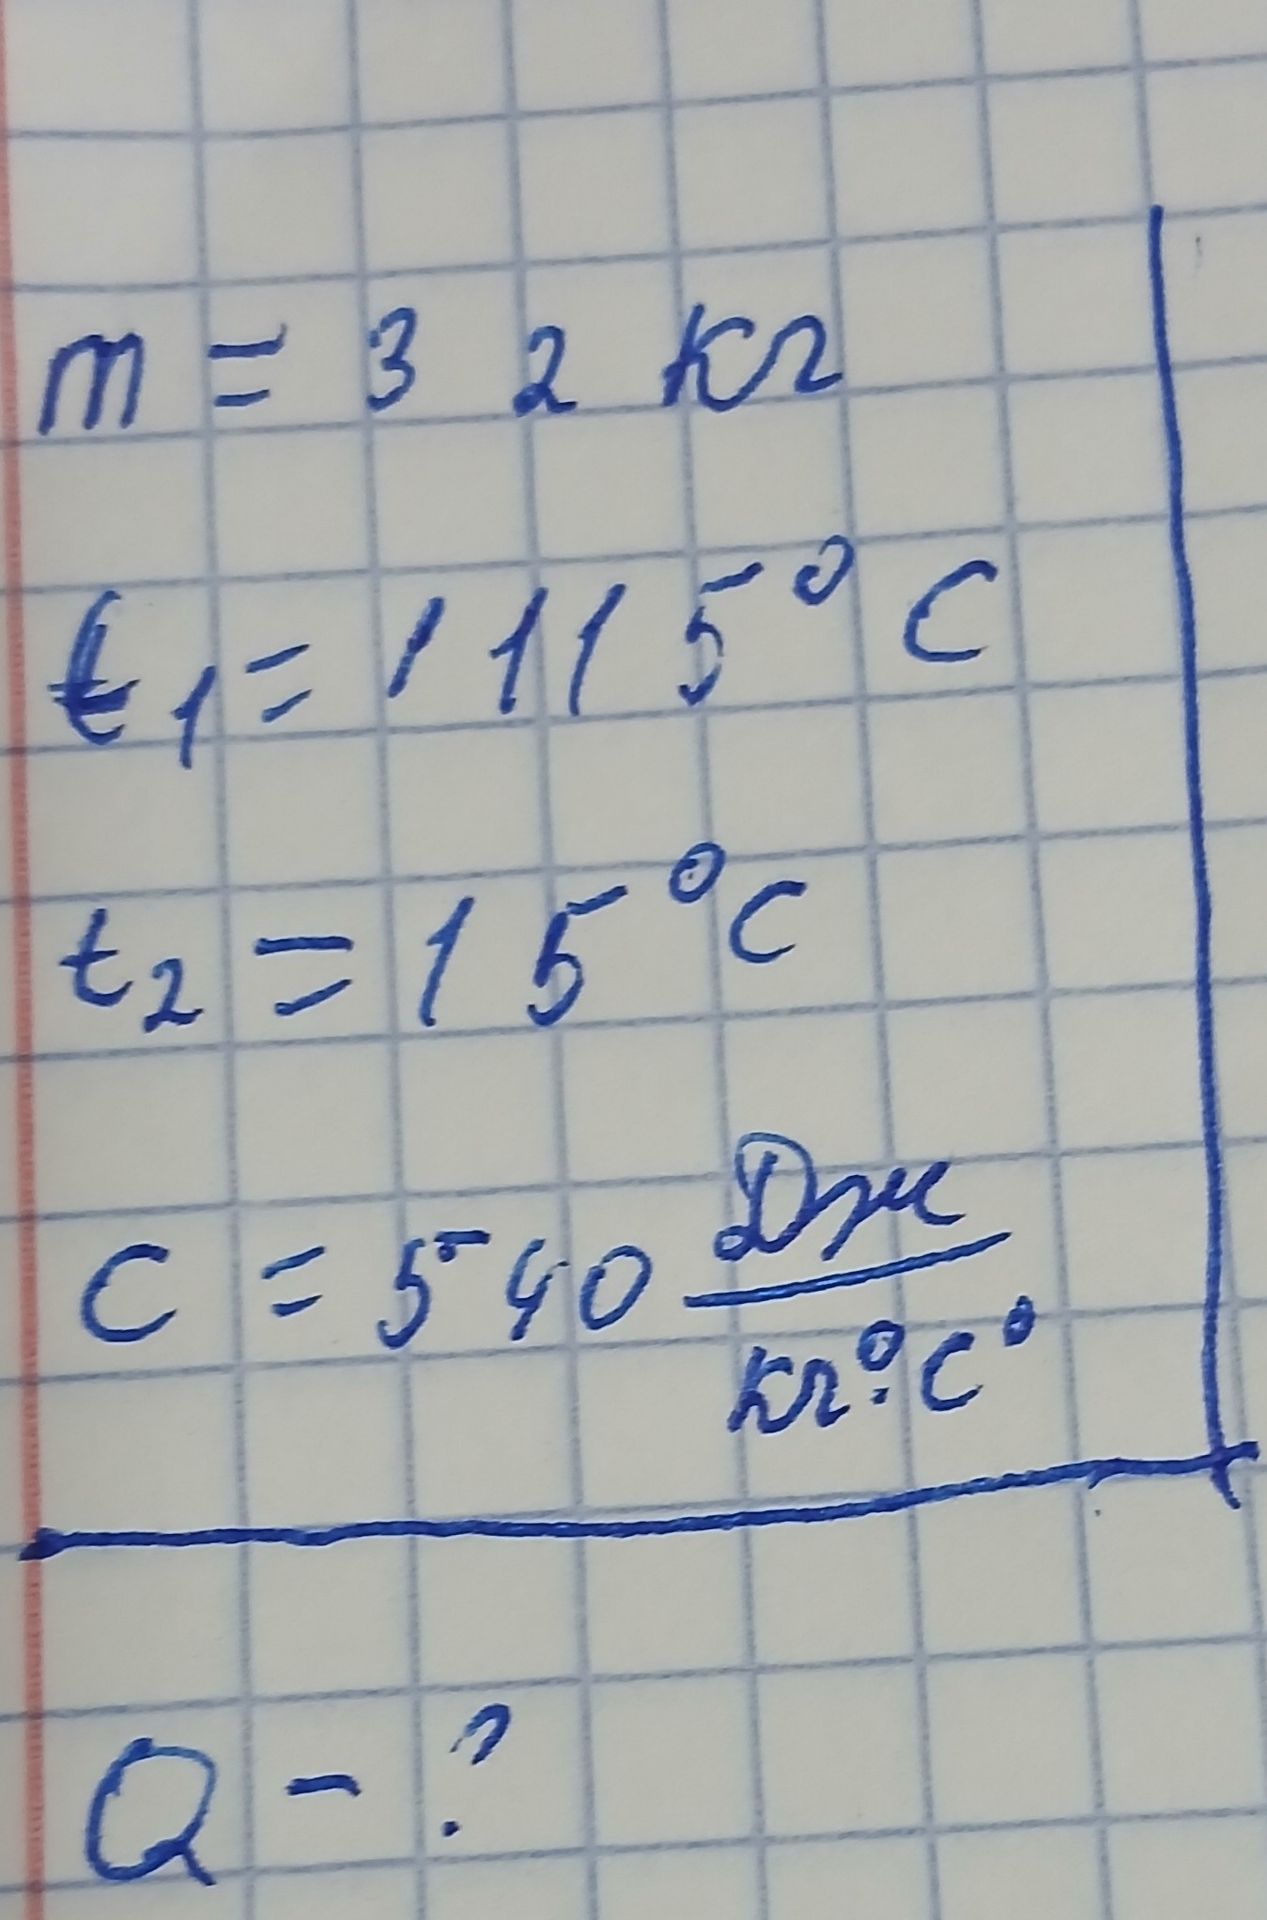 m = 32 кг
t₁ = 1115°C
t₂ = 15°C
C = 540 Дж
кг·°C°
Q - ?